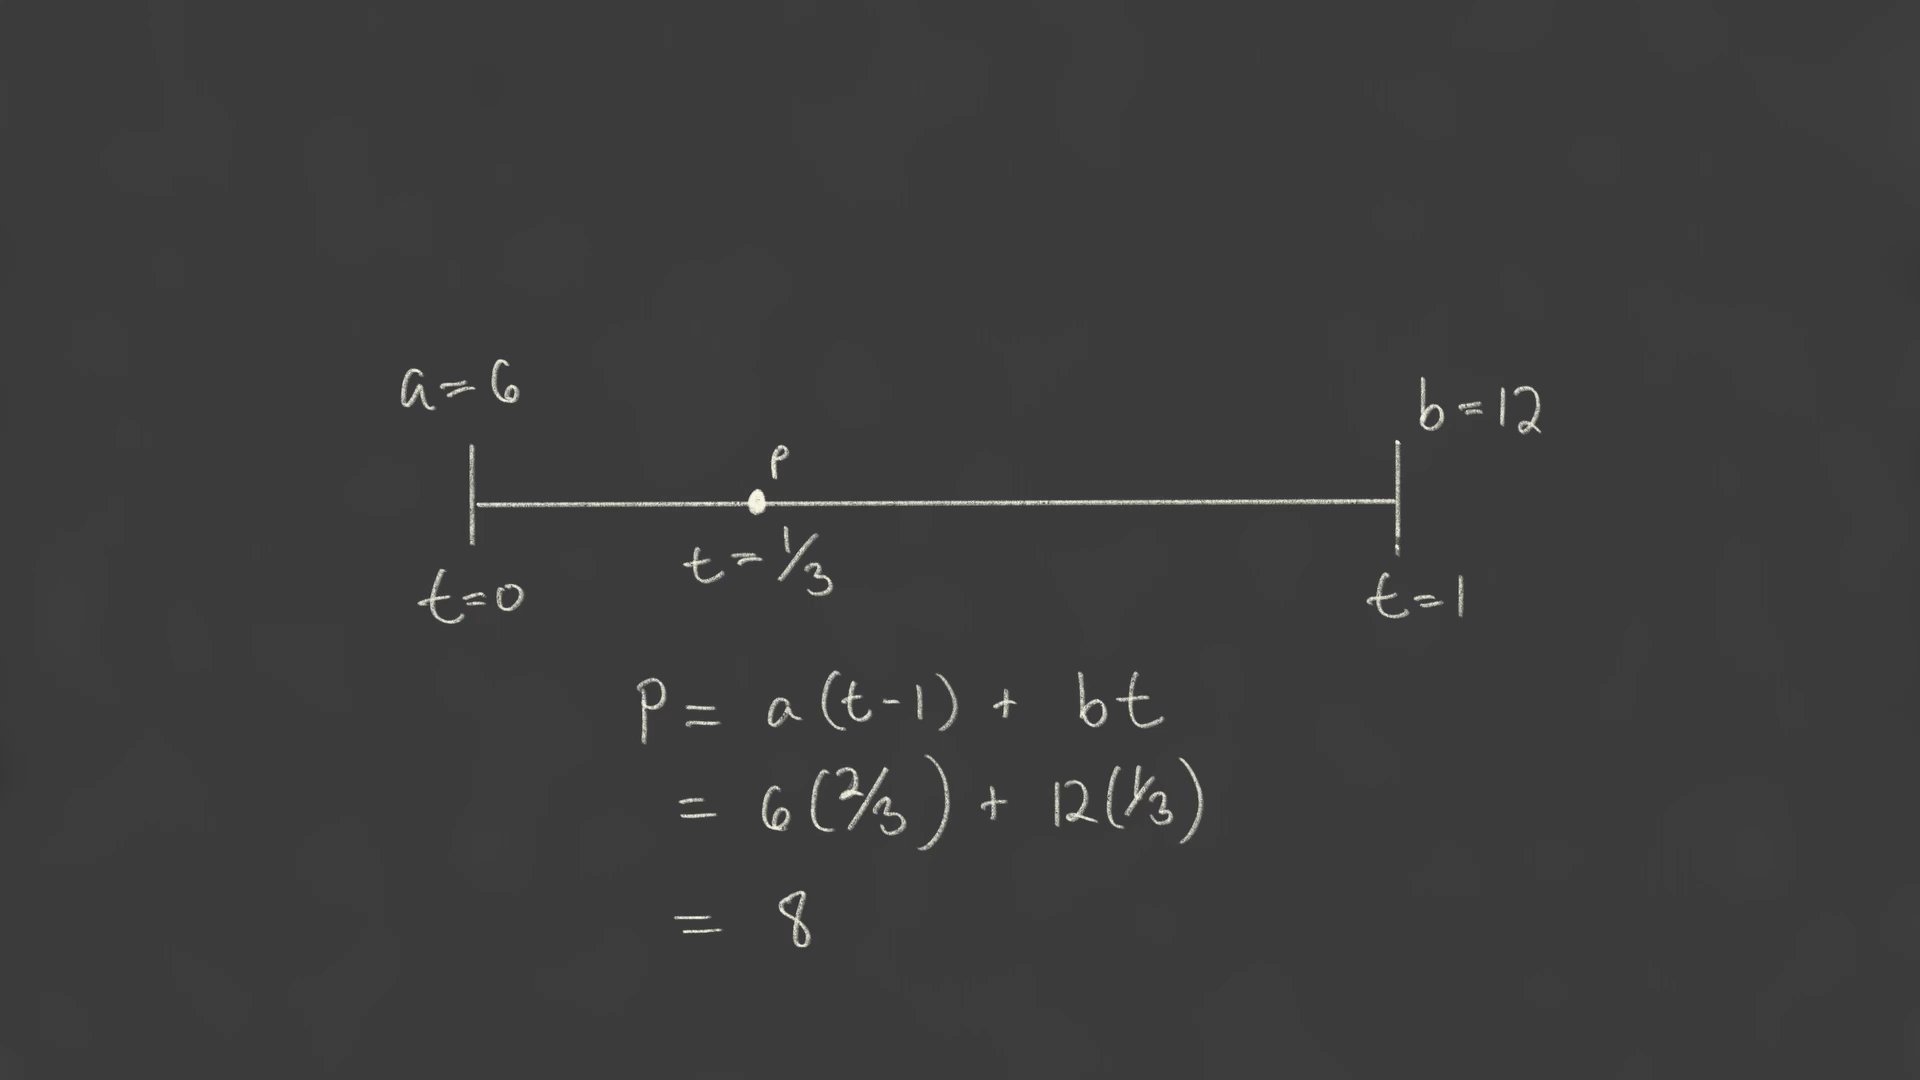 a=6
b=12
P
t=1/3
t=0
t=1
P= a(t-1) + bt
= 6(2/3) + 12(1/3)
= 8